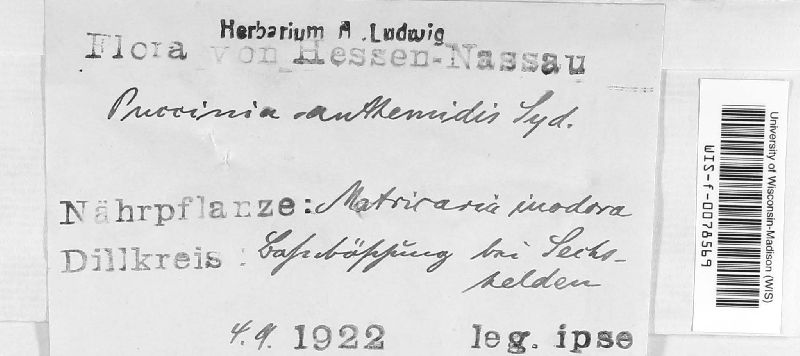 Herbarium A. Ludwig
Flora von Hessen-Nassau
Puccinia anthemidis Syd.
Nährpflanze: Matricaria inodora
Dillkreis: Bahnböschung bei Sechs-
helden
4.9. 1922 leg. ipse
University of Wisconsin-Madison (WIS)
WIS-f-0078569